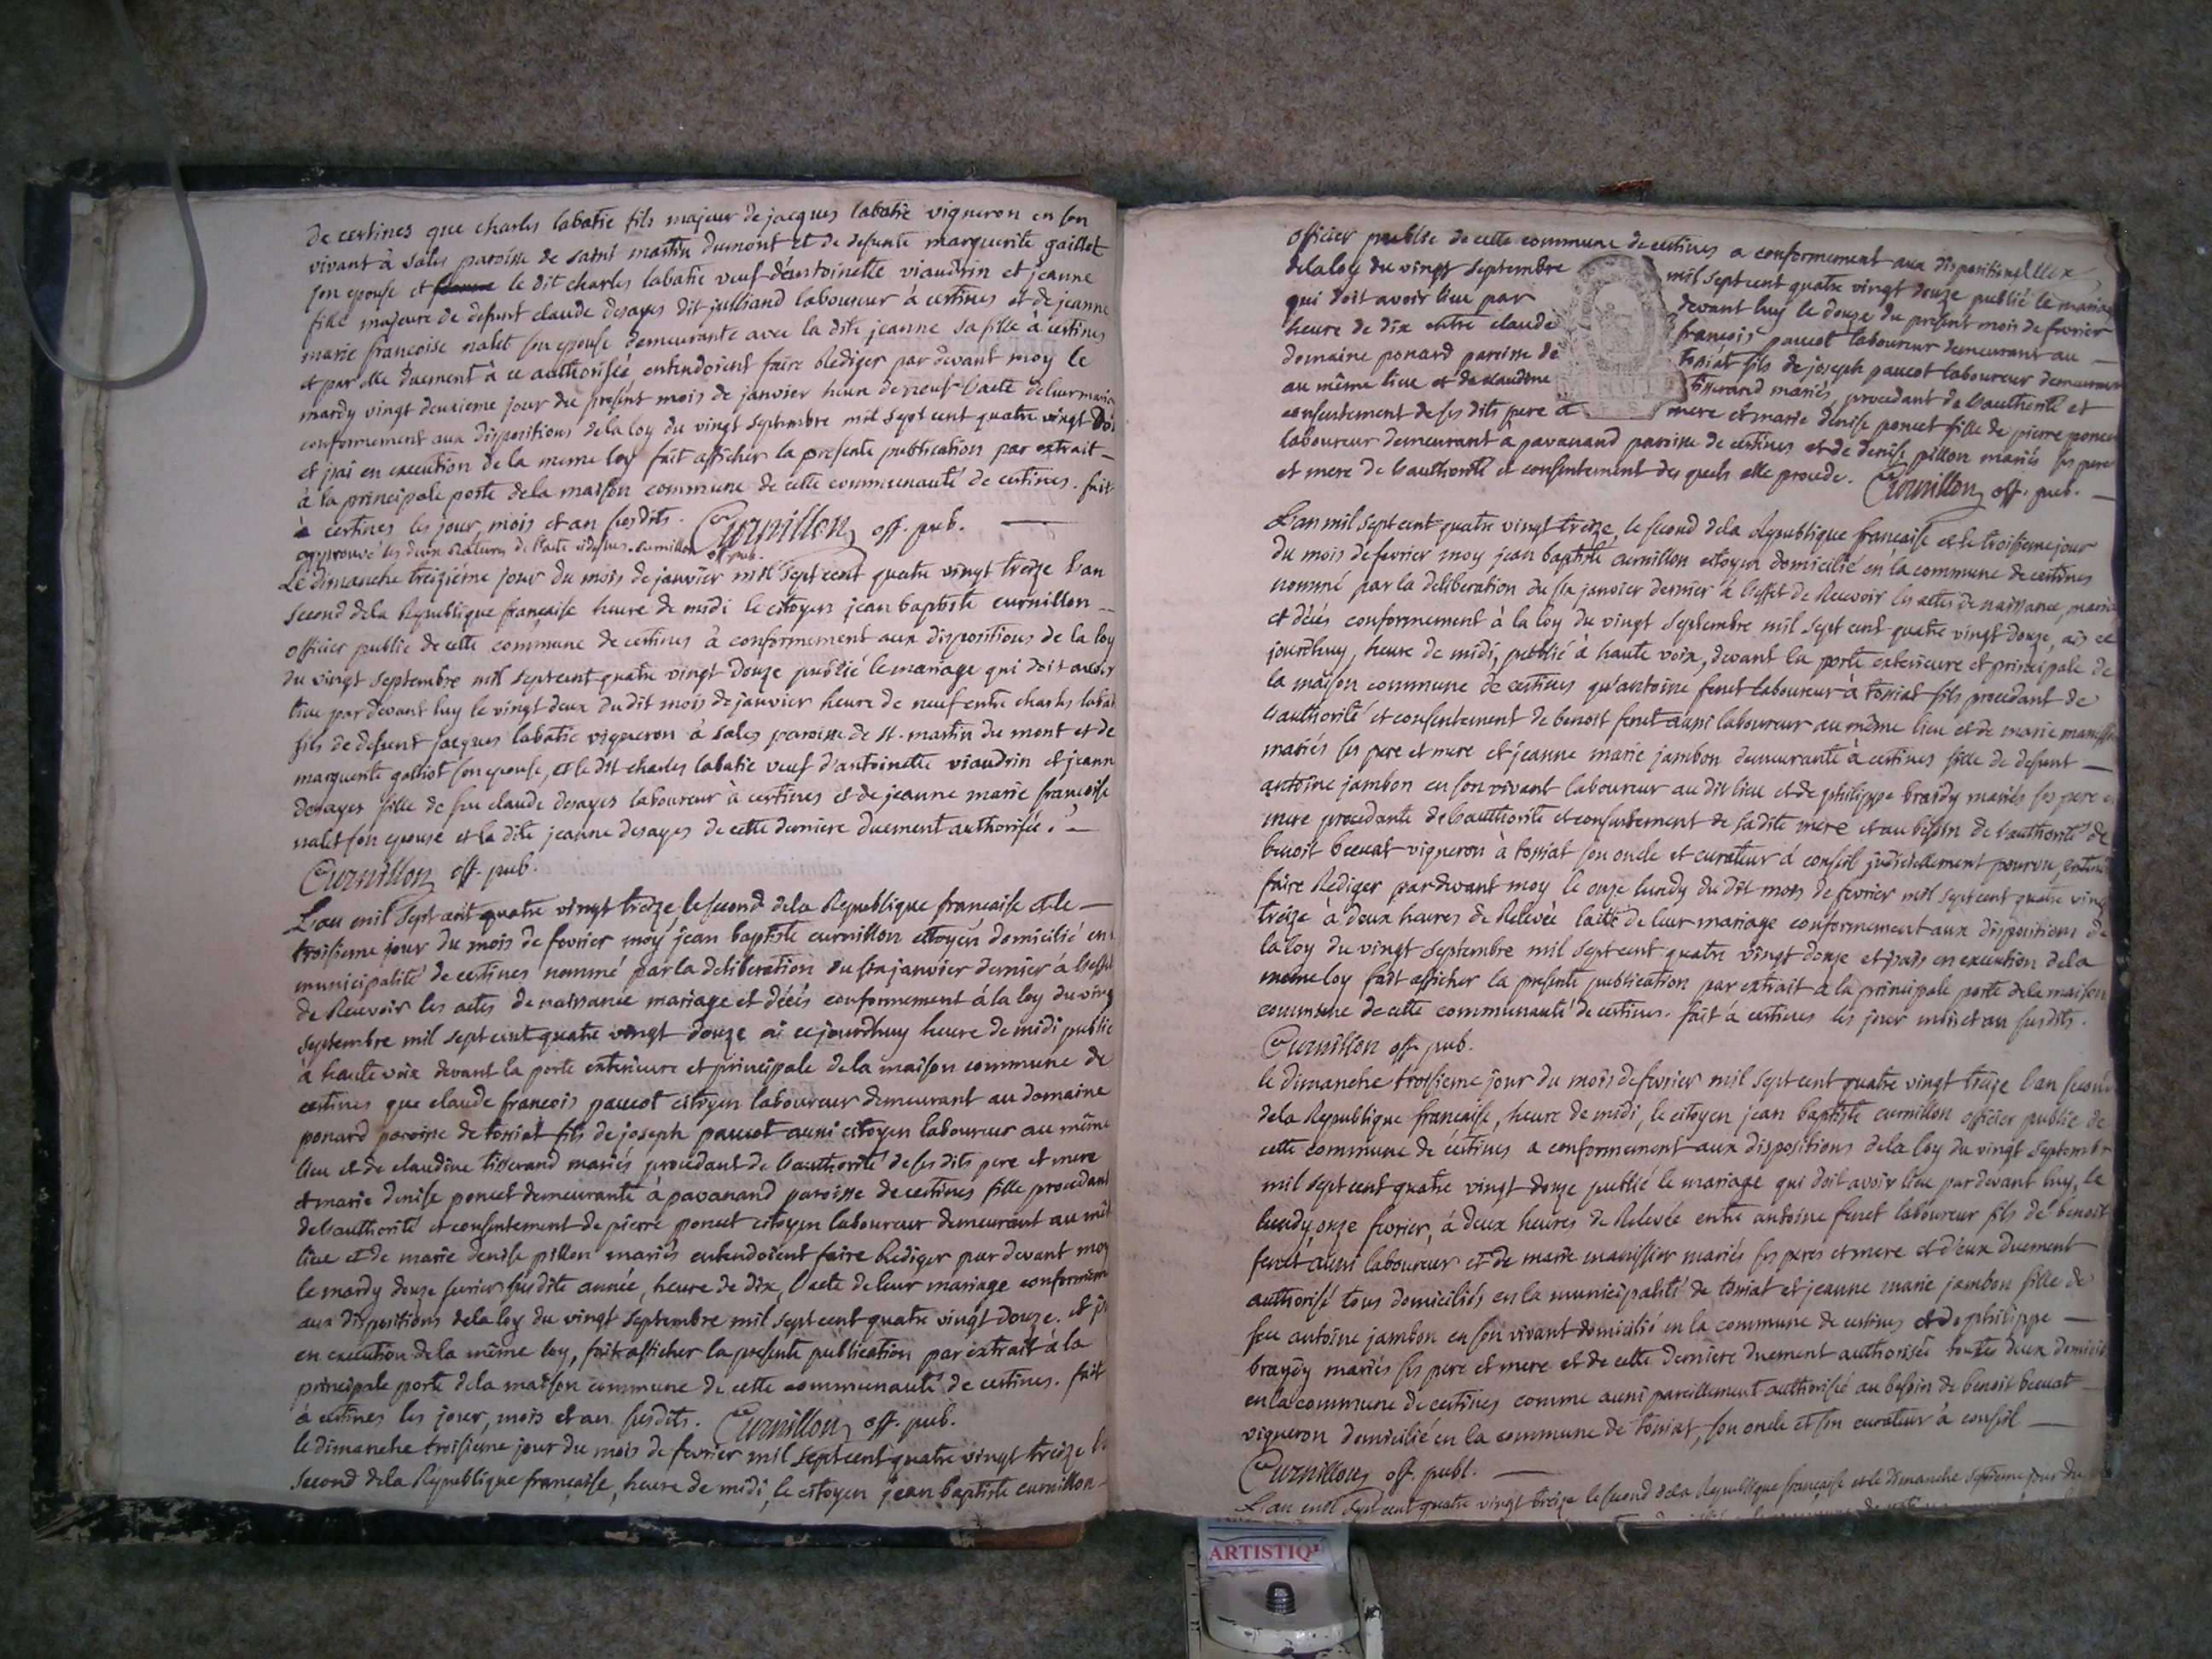 de certines que charles labatie fils majeur de jacques labatie vigneron en son
vivant à sales paroisse de saint martin dumont et de defunte marguerite gaillot
son epouse et le dit charles labatie veuf d'antoinette viaudrin et jeanne
fille majeure de defunt claude desayes dit julliand laboureur à certines et de jeanne
marie francoise nalet son epouse demeurante avec la dite jeanne sa fille à certines
et par elle duement à ce authorisée entendoient faire Rediger par devant moy le
mardy vingt deuxieme jour du present mois de janvier heure de neuf l'acte de leur
conformement aux dispositions de la loy du vingt septembre mil sept cent quatre vingt
et j'ai en execution de la meme loy fait afficher la presente publication par extrait
à la principale porte de la maison commune de cette communauté de certines. fait
à certines les jour, mois et an susdits. Curnillon off. pub.
approuvé les deux de l'acte curnillon off. pub.
Le dimanche treizième jour du mois de janvier mil sept cent quatre vingt treize l'an
second de la Republique française heure de midi le citoyen jean baptiste curnillon
officier public de cette commune de certines a conformement aux dispositions de la loy
du vingt septembre mil sept cent quatre vingt douze publié le mariage qui doit avoir
lieu par devant luy le vingt deux du dit mois de janvier heure de neuf entre charles
fils de defunt jacques labatie vigneron à sales paroisse de st. martin du mont et de
marguerite galliot son epouse, et le dit charles labatie veuf d'antoinette viaudrin et
desayes fille de feu claude desayes laboureur à certines et de jeanne marie francoise
nalet son epouse et la dite jeanne desayes de cette derniere duement authorisée.
Curnillon off. pub.
L'an mil sept cent quatre vingt treize le second de la Republique francaise et le
troisieme jour du mois de fevrier moy jean baptiste curnillon citoyen domicilié en
municipalité de certines nommé par la deliberation du six janvier dernier à
de Recevoir les actes de naissance mariage et décès conformement à la loy du
septembre mil sept cent quatre vingt douze ai ce jourdhuy heure de midi publié
à haute voix devant la porte exterieure et principale de la maison commune de
certines que claude francois paucot citoyen laboureur demeurant au domaine
ponard paroisse de tossiat fils de joseph paucot aussi citoyen laboureur au même
lieu et de claudine tisserand mariés procedant de l'authorité de ses dits pere et mere
et marie denise poncet demeurante à pavanand paroisse de certines fille
de l'authorité et consentement de pierre poncet citoyen laboureur demeurant au
lieu et de marie denise pillon mariés entendoient faire Rediger par devant moy
le mardy douze fevrier susdite année, heure de dix, l'acte de leur mariage
aux dispositions de la loy du vingt septembre mil sept cent quatre vingt douze. et
en execution de la même loy, fait afficher la presente publication par extrait à la
principale porte de la maison commune de cette communauté de certines. fait
à certines les jour, mois et an susdits. Curnillon off. pub.
le dimanche troisiéme jour du mois de fevrier mil sept cent quatre vingt treize
second de la Republique française, heure de midi, le citoyen jean baptiste curnillon
officier public de cette commune de certines a conformement aux
de la loy du vingt septembre mil sept cent quatre vingt douze publié le
qui doit avoir lieu par devant luy le douze du present mois de fevrier
heure de dix entre claude francois paucot laboureur demeurant au
domaine ponard paroisse de tossiat fils de joseph paucot laboureur
au même lieu et de claudine tisserand mariés, procedant de l'authorité et
consentement de ses dits pere et mere et marie denise poncet fille de pierre
laboureur demeurant à pavanand paroisse de certines et de denise pillon mariés ses pere
et mere de l'authorité et consentement des quels elle procede. Curnillon off. pub.
L'an mil sept cent quatre vingt treize, le second de la Republique francaise et le troisieme jour
du mois de fevrier moy jean baptiste curnillon citoyen domicilié en la commune de certines
nommé par la deliberation du six janvier dernier à l'effet de Recevoir les actes de naissance,
et décés conformement à la loy du vingt septembre mil sept cent quatre vingt douze, ais ce
jourdhuy, heure de midi, publié à haute voix, devant la porte exterieure et principale de
la maison commune de certines qu'antoine feret laboureur à tossiat fils procedant de
l'authorité et consentement de benoit feret aussi laboureur au même lieu et de marie
mariés ses pere et mere et jeanne marie jambon demeurante à certines fille de defunt
antoine jambon en son vivant laboureur au dit lieu et de philippe mariés ses pere
mere procedante de l'authorité et consentement de sa dite mere et au besoin de l'authorité de
benoit vigneron à tossiat son oncle et curateur à conseil judiciellement pourvu
faire Rediger par devant moy le onze lundy du dit mois de fevrier mil sept cent quatre
treize à deux heures de Relevée l'acte de leur mariage conformement aux dispositions de
la loy du vingt septembre mil sept cent quatre vingt douze et j'ais en execution de la
même loy fait afficher la presente publication par extrait à la principale porte de la maison
commune de cette communauté de certines. fait à certines les jour mois et an susdits.
Curnillon off. pub.
le dimanche troisieme jour du mois de fevrier mil sept cent quatre vingt treize l'an
de la Republique francaise, heure de midi, le citoyen jean baptiste curnillon officier public de
cette commune de certines a conformement aux dispositions de la loy du vingt
mil sept cent quatre vingt douze publié le mariage qui doit avoir lieu par devant luy, le
lundy onze fevrier, à deux heures de Relevée entre antoine feret laboureur fils de benoit
feret aussi laboureur et de marie manissier mariés ses peres et mere et d'eux duement
authorisé tous domiciliés en la municipalité de tossiat et jeanne marie jambon fille de
feu antoine jambon en son vivant domicilié en la commune de certines et de philippe
mariés ses pere et mere et de cette derniere duement authorisée toutes deux
en la commune de certines comme aussi pareillement authorisée au besoin de benoit
vigneron domicilié en la commune de tossiat, son oncle et son curateur à conseil
Curnillon off. publ.
L'an mil sept cent quatre vingt treize le second de la Republique francaise et le dimanche jour du
ARTISTIQ